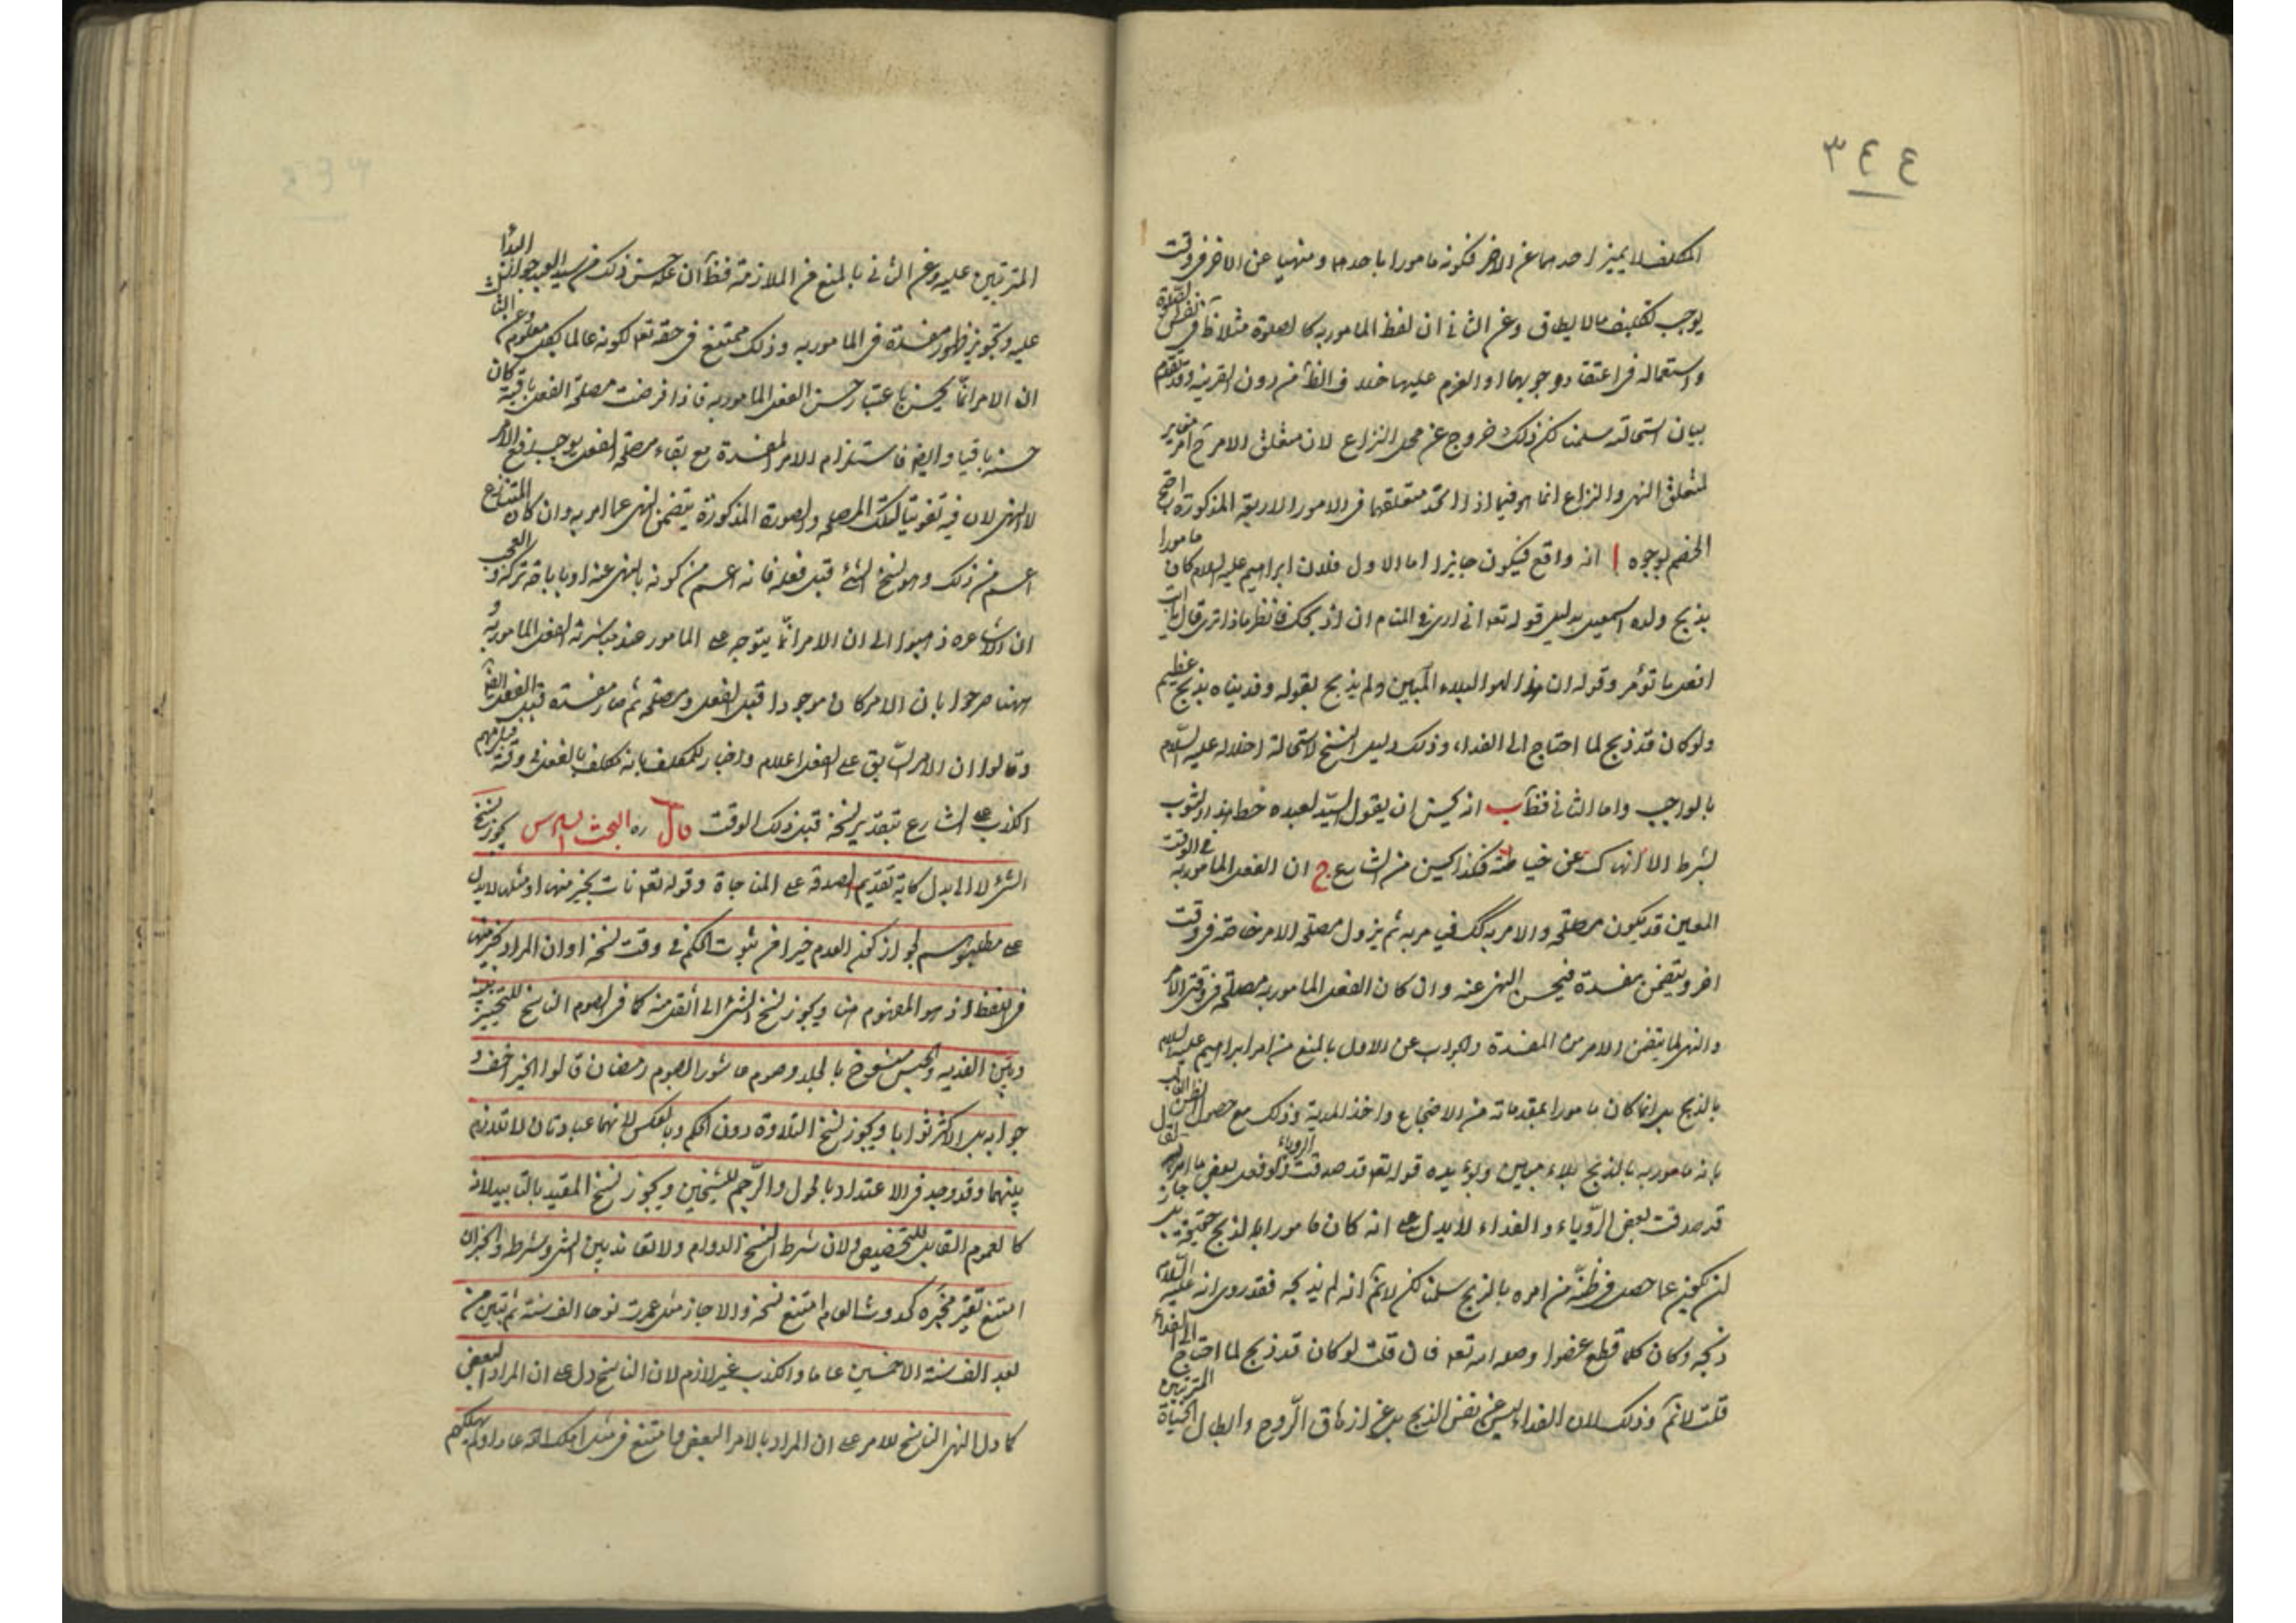 ٣٤٤
المكلف لا يميز احدهما عن الاخر فكونه مامورا باحدهما ومنهيا عن الاخر في وقت
يوجب تكليف ما لا يطاق وعن الثاني ان لفظ المامور به كالصلوة مثلا ظ في نفس الصلوة
واستعماله في اعتقاد وجوبهما او العزم عليها خلاف الظ من دون القرينه وقد تقدم
بيان استحالته سلمنا لكن ذلك خروج عن محل النزاع لان متعلق الامر ح امر مغاير
لمتعلق النهي والنزاع انما هو فيما اذا اتحد متعلقهما في الامور الاربعة المذكورة احتج
الخصم بوجوه ا انه واقع فيكون جايزا اما الاول فلان ابراهيم عليه السلام كان مامورا
بذبح ولده اسمعيل بدليل قوله تعه اني ارى في المنام ان اذبحك فانظر ماذا ترى قال يا ابت
افعل ما تؤمر وقوله ان هذا لهو البلاء المبين ولم يذبح لقوله وفديناه بذبح عظيم
ولو كان قد ذبح لما احتاج الى الفداء وذلك دليل النسخ لاستحالة اخلاله عليه السلام
بالواجب واما الثاني فظ ب انه يحسن ان يقول السيد لعبده خط هذا الثوب
بشرط الا انهاك عن خياطته فكذا يحسن من الشارع ج ان الفعل المامور به في الوقت
المعين قد يكون مصلحة والامر به كك فيامر به ثم يزول مصلحة الامر خاصة في وقت
اخر ويتضمن مفسدة فيحسن النهي عنه وان كان الفعل المامور به مصلحة في وقتي الامر
والنهي لما يتضمن الامر من المفسدة والجواب عن الاول بالمنع من امر ابراهيم عليه السلام
بالذبح بل انما كان مامورا بمقدماته من الاضجاع واخذ المدية وذلك مع حصول الظن الغالب
بانه مامور به بالذبح بلاء مبين ويؤيده قوله تعه قد صدقت الرؤياء ولو فعل بعض ما امر به لقال
قد صدقت بعض الرؤياء والفداء لا يدل على انه كان مامورا بالذبح حقيقة بل جاز
ان يكون عما حصل في ظنه من امره بالذبح سلمنا لكن لا نم انه لم يذبحه فقد روى انه عليه السلام
ذبحه وكان كلما قطع عضوا وصله الله تعه فان قلت لو كان قد ذبح لما احتاج الى الفداء
قلت لا نم وذلك لان الفداء ليس عن نفس الذبح بل عن ازهاق الروح وابطال الحياة المترتبين
المترتبين عليه وعن الثاني بالمنع من الملازمة فظ ان علة حسن ذلك من سيد العبد جواز البدا
عليه وتجويز ظهور مفسدة في المامور به وذلك ممتنع في حقه تعه لكونه عالما بكل معلوم وعن الثا
ان الامر انما يحسن باعتبار حسن الفعل المامور به فاذا فرضت مصلحة الفعل باقية كان
حسنه باقيا وايضا فاستلزام الامر لمفسدة مع بقاء مصلحة الفعل يوجب رفع الامر
لا النهي لان فيه تفويتا لتلك المصلحة والصورة المذكورة يتضمن النهي عما امر به وان كان المتنازع
اعم من ذلك وهو نسخ الشئ قبل فعله فانه اعم من كونه بالنهي عنه او باباحة تركه والعجب
ان الاشاعره ذهبوا الى ان الامر انما يتوجه على المامور عند مباشرته الفعل المامور به و
ههنا صرحوا بان الامر كان موجودا قبل الفعل ومصلحة ثم صار مفسدة قبل الفعل ايضا
وقالوا ان الامر السابق على الفعل اعلام واخبار للمكلف بانه مكلف بالفعل في وقته
الكذب على الشارع بتقدير نسخه قبل ذلك الوقت قال ره البحث السادس يجوز نسخ
الشئ لا الى بدل كاية تقديم الصدقة على المناجاة وقوله تعه نات بخير منها او مثلها لا يدل
على مطلوبهم لجواز كون العدم خيرا من ثبوت الحكم في وقت نسخه او ان المراد بخير منها
في اللفظ اذ هو المفهوم منها ويجوز نسخ الشئ الى اثقل منه كما في الصوم الناسخ للتخيير بينه
وبين الفديه والحبس منسوخ بالجلد وصوم عاشورا بصوم رمضان قالوا الخير اخف و
جوابه بل الاكثر ثوابا ويجوز نسخ التلاوة دون الحكم وبالعكس لانهما عبادتان لا تلازم
بينهما وقد وجد في الاعتداد بالحول والرجم للشيخين ويجوز نسخ المقيد بالتابيد لانه
كالعموم القابل للتخصيص ولان شرط النسخ الدوام ولا تعاند بين الشئ وشرطه والخبر ان
امتنع تغير مخبره كحدوث العالم امتنع نسخه والا جاز مثل عمرت نوحا الف سنة ثم تبين من
بعد الف سنة الا خمسين عاما والكذب غير لازم لان الناسخ دل على ان المراد البعض
كما دل النهي الناسخ للامر على ان المراد بالامر البعض وامتنع في مثل اهلك الله عادا ولم يهلكهم